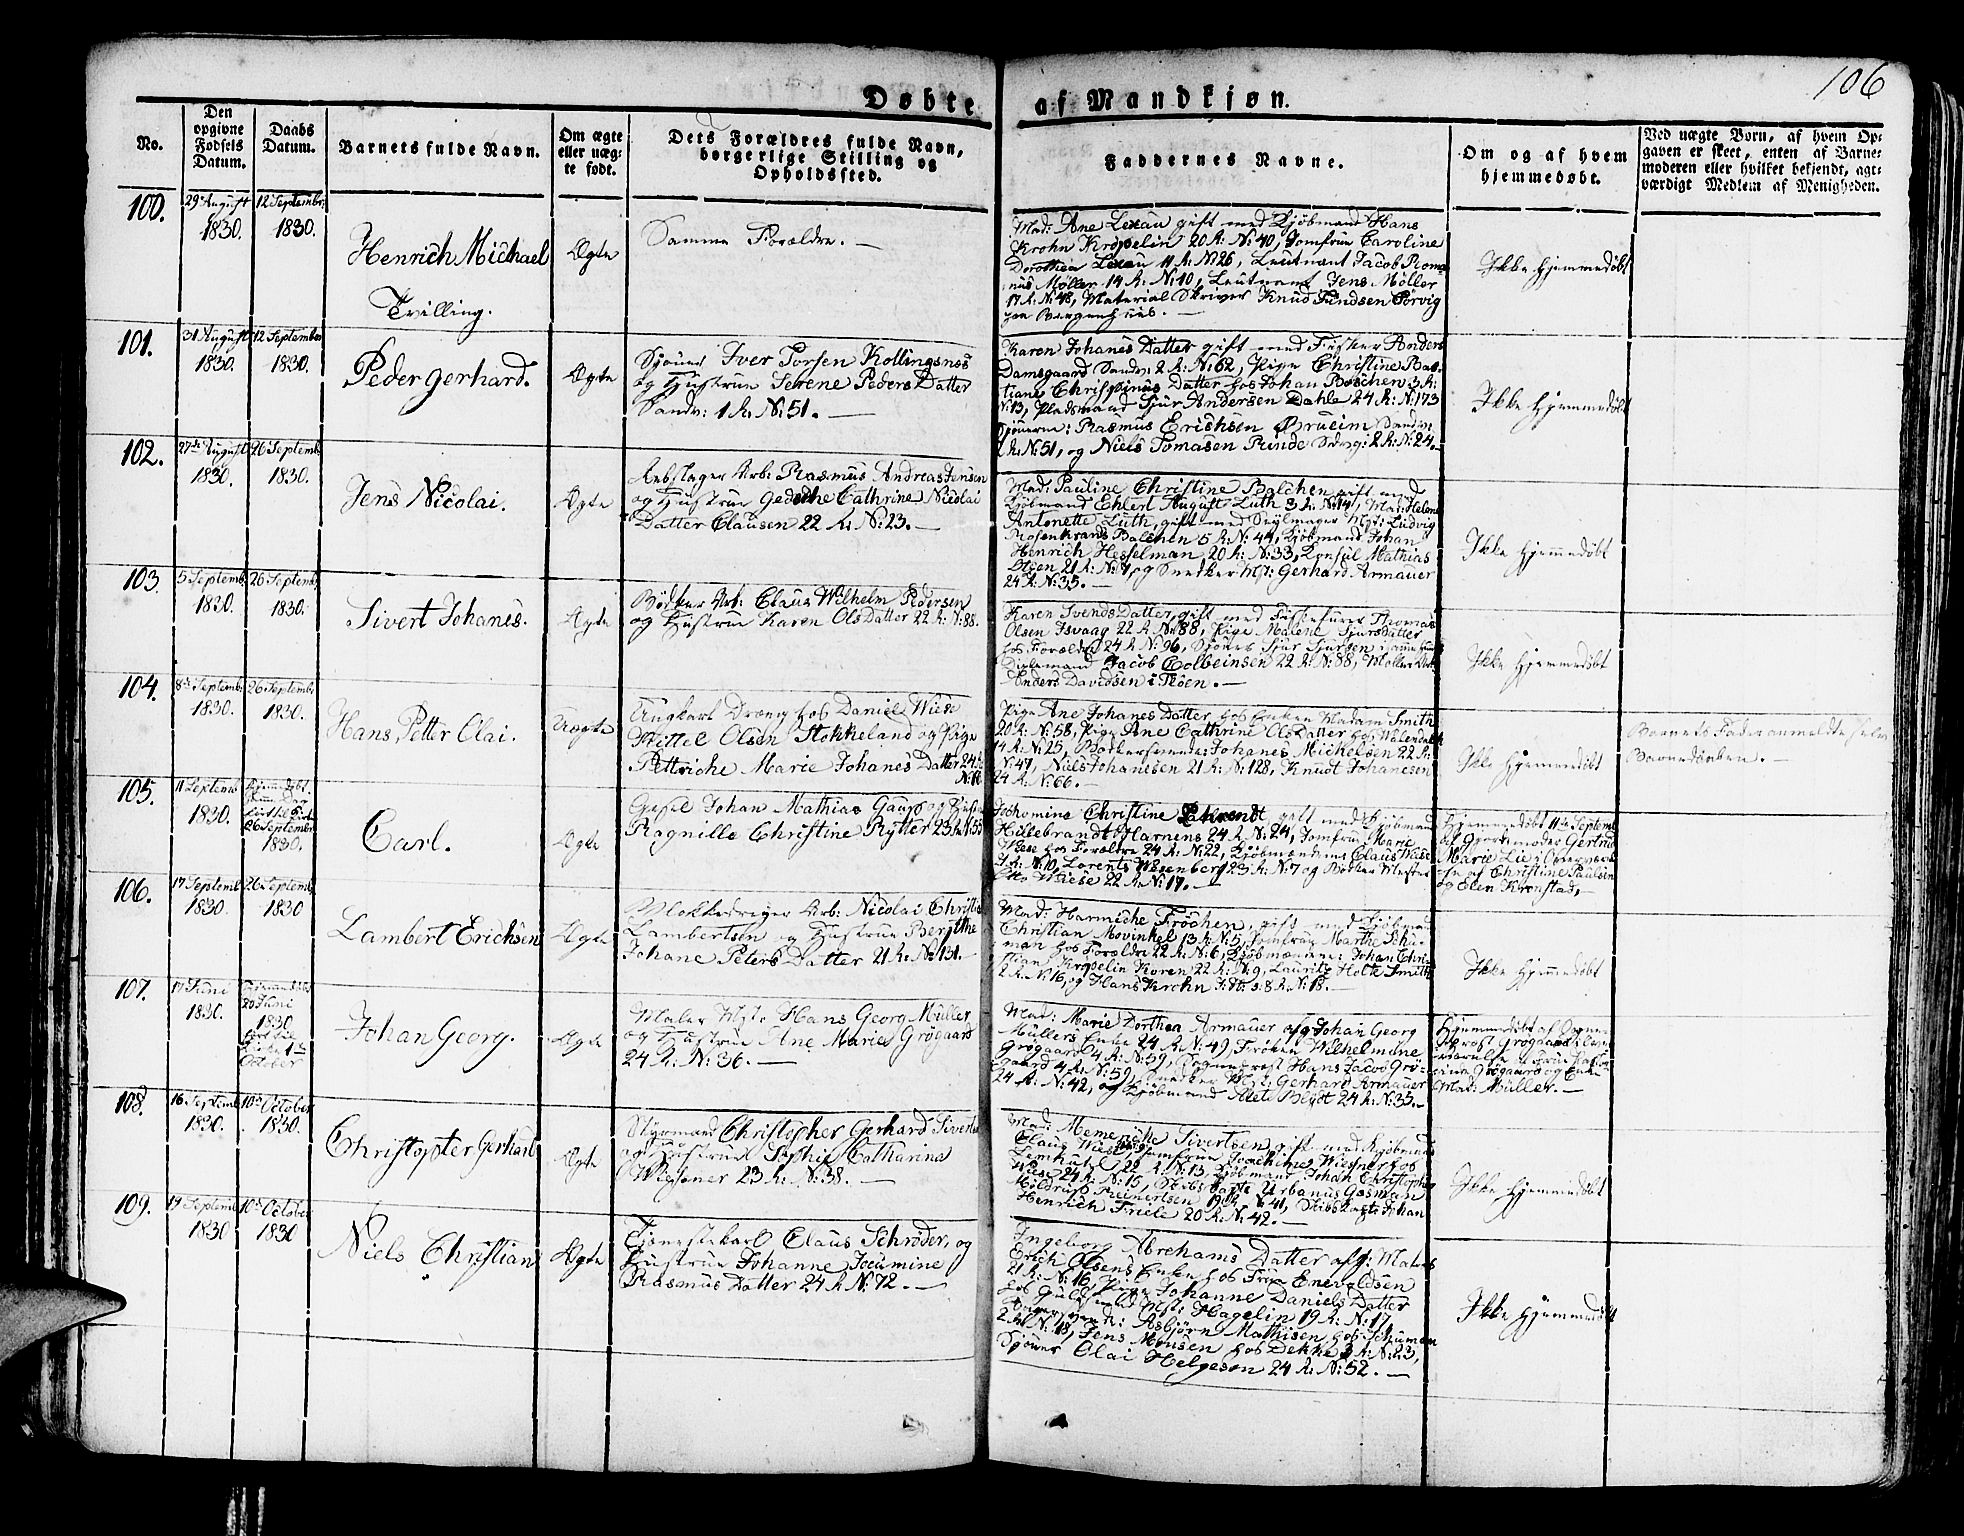 106
Døbte af Mandkjøn.
No.
Den opgivne Fødsels Datum.
Daabs Datum.
Barnets fulde Navn.
Om ægte eller uægte født.
Dets Forældres fulde Navn, borgerlige Stilling og Opholdssted.
Faddernes Navne.
Om og af hvem hjemmedøbt.
Ved uægte Børn, af hvem Opgaven er skeet, enten af Barnemoderen eller hvilket bekjendt, agtværdigt Medlem af Menigheden.
100.
29 August 1830.
12 Septembr: 1830.
Henrich Michael
Tvilling.
Ægte
Samme Forældre. —
Mad: Ane Lexau gift med Kjøbmand Hans
Krohn Krøpelin 20 R: N: 40, Jomfrue Caroline
Dorothea Lexau 11 R: N: 26, Leutnant Jacob Roma-
nus Møller 14 R: N: 10, Leutnant Jens Møller
17 R: N: 48, Material Skriver Knud Findsen Børvig
paa Bergenhuus. —
Ikke hjemmedøbt
101.
31 August 1830.
12 September 1830.
Peder Gerhard.
Ægte
Sjøuer Iver Torsen Kollingsnes
og Hustrue Serene Peders Datter
Sandv: 1 R: N: 51. —
Karen Johanes Datter gift med Fisker Anders
Damsgaard Sandv: 2 R: N: 62, Pige Christine Bas-
tiane Chrispinus Datter hos Johan Böschen 3 R:
N: 13, Pladsmand Sjur Andersen Dahle 24 R: N: 173
Sjøuerne: Rasmus Erichsen Ørueim Sandv:
1 R: N: 51, og Niels Tomasen Runde Sdvgi: 2 R: N: 24.
Ikke hjemmedøbt
102.
27de August 1830.
26 Septemb: 1830.
Jens Nicolai.
Ægte
Rebslager Arb: Rasmus Andreas Jensen
og Hustrue Gedsche Cathrine Nicolai
Datter Clausen 22 R: N: 23. —
Mad: Pauline Christine Balchen gift med
Kjøbmand Ehlert August Luth 3 R: N: 14, Mad: Helene
Antonette Luth, gift med Seylmager Mst: Ludvig
Rosenkrans Balchen 5 R: N: 44, Kjøbmand Johan
Henrich Hesselman, 20 R: N: 33, Konsul Mathias
Olsen 21 R: N: 7, og Snedker Mst: Gerhard Armauer
24 R: N: 35. —
Ikke hjemmedøbt
103
5 Septemb: 1830.
26 Septemb: 1830.
Sivert Johanes.
Ægte
Bødker Arb: Claus Wilhelm Pedersen
og Hustrue Karen Ols Datter 22 R: N: 88.
Karen Svends Datter, gift med Fiskefører Thomas
Olsen Isvaag 22 R: N: 88, Pige Malene Sjurs Datter
hos Forældre 24 R: N: 96, Sjøuer Sjur Sjursen
Jacob Colbeinsen 22 R: N: 88, Møller
Anders Davidsen i Floen. —
Ikke hjemmedøbt
104.
8de Septemb: 1830.
26 Septemb: 1830.
Hans Petter Olai.
Uægte
Ungkarl Dreng hos Daniel Wiese
Kittel Olsen Stokkeland og Pige
Pettriche Marie Johanes Datter 24 R:
Pige Ane Johanes Datter hos Enken Madam Smith
20 R: N: 58, Pige Ane Cathrine Ols Datter hos Walendahl
14 R: N: 25, Bødkersvenne: Johanes Mickelsen 22 R:
N: 47, Niels Johanesen 21 R: N: 128, Knudt Johanesen
24 R: N: 66. —
Ikke hjemmedøbt
Barnets Fader anmeldte selv
Barnedaaben. —
105.
11 Septemb 1830.
26 Septembr 1830.
Carl.
Ægte
Johan Mathias Gaurs og Hustrue
Ragnille Christine Rytter 23 R: N: 55
Johomine Christine gift med Kjøbmand
Hillebrandt Harmens 24 R: N: 24, Jomfrue Marie
Wiese hos Forældre 24 R: N: 22, Kjøbmændene Claus Wiese
7 R: N: 10, Lorents Wesenberg 23 R: N: 7 og Bødker Mester
Wiese 22 R: N: 17. —
Hjemmedøbt 11te Septemb:
af Gjordemoder Gertrud
Marie Lie i Overværel-
se af Christine Paulsen
og Elen Kronstad. —
106.
17 Septemb 1830.
26 Septemb 1830
Lambert Erichsen
Ægte
Blokkedreyer Arb: Nicolai Christian
Lambertsen og Hustrue Berethe
Johane Peters Datter 21 R: N: 131. —
Mad: Harmiche Frøchen, gift med Kjøbmand
Christian Mowinkel 13 R: N: 5, Jomfrue Marthe Schu-
man hos Forældre 22 R: N: 6, Kjøbmænene: Johan Chris-
stian Krøpelin Koren 22 R: N: 9, Lauritz Holte Smith
2 R: N: 16, og Hans Krohn 8 R: N: 18. —
Ikke hjemmedøbt
107.
17 Juni 1830.
20 Juni 1830
1te October
Johan Georg.
Ægte
Maler Mst: Hans Georg Müller
og Hustrue Ane Marie Grøgaard
24 R: N: 36. —
Mad: Marie Dorthea Armauer afg: Johan Georg
Müllers Enke 24 R: N: 49, Frøken Wilhelmine
Grøgaard 4 R: N: 59, Sogneprest Hans Jacob Grø-
gaard 4 R: N: 59, Snedker Mst: Gerhard Armauer
24 R: N: 42, og Kjøbmand Blydt 24 R: N: 35. —
Hjemmedøbt af Sogne-
prest Grøgaard i Over-
værelse af
Grøgaard og Enke
Mad: Müller. —
108.
16 Septemb 1830.
10de October 1830.
Christopher Gerhard
Ægte
Styrmand Christopher Gerhard Sivertsen
og Hustrue Sophie Catharina
Wiesener 23 R: N: 38. —
Mad: Sivertsen gift med Kjøbmand
Claus Wiese Jomfrue Joachime Wiesner hos
22 R: N: 13, Kjøbmænene Johan Christopher
Wiese 24 R: N: 15, Skibs Capt: Urbanus Gasman
Moldrup Reinertsen 19 R: N: 41, Skibs Capt: Johan
Henrich Friele 20 R: N: 42. —
Ikke hjemmedøbt
109.
19 Septemb 1830
10de October 1830
Niels Christian
Ægte
Tjenestekarl Claus Schrøder, og
Hustrue Johanne Jocumine
Rasmus Datter 24 R: N: 72. —
Ingeborg Abrehams Datter afg: Mates
Erich Olsens Enke hos Frue Enevoldsen
21 R: N: 16, Pige Johanne Daniels Datter
hos Guldsmed Mst: Hagelin 19 R: N: 17,
Asbjørn Mathisen hos Schuman
2 R: N: 18, Jens Monsen hos Dekke 3 R: N: 23,
Sjøuer Olai Helgeson 24 R: N: 52. —
Ikke hjemmedøbt